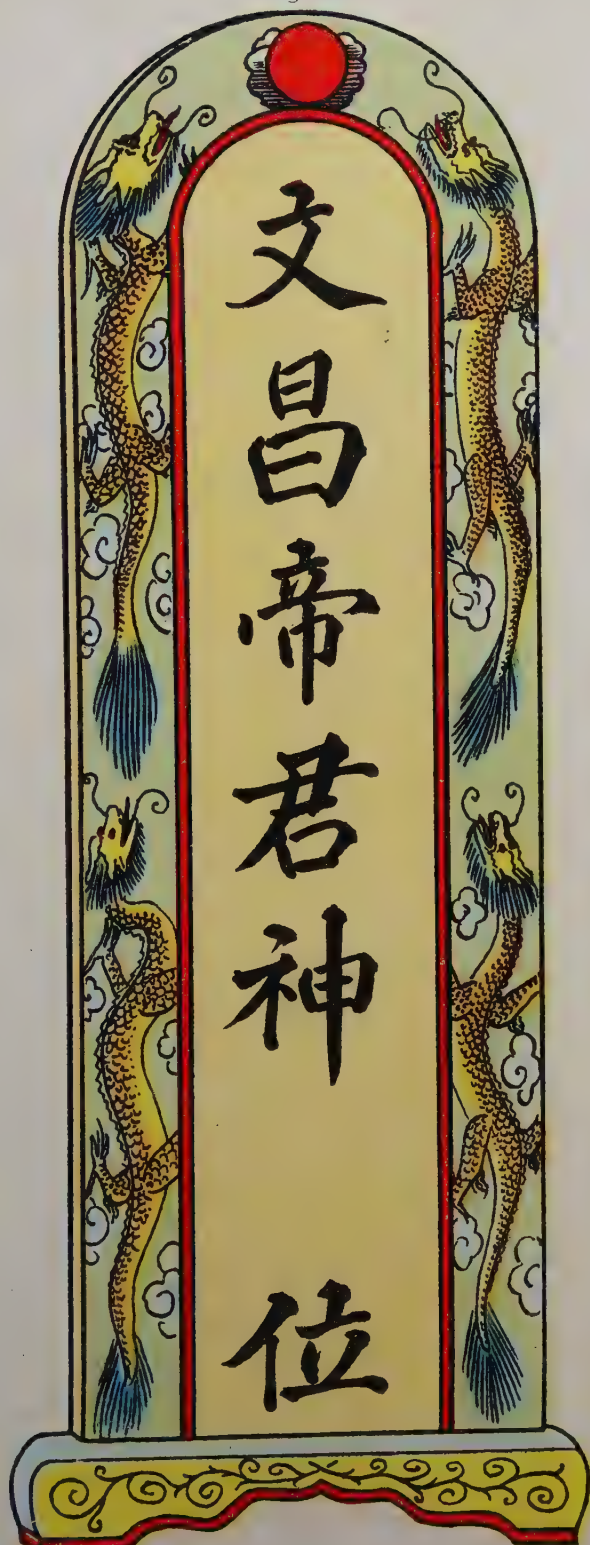 文昌帝君神位